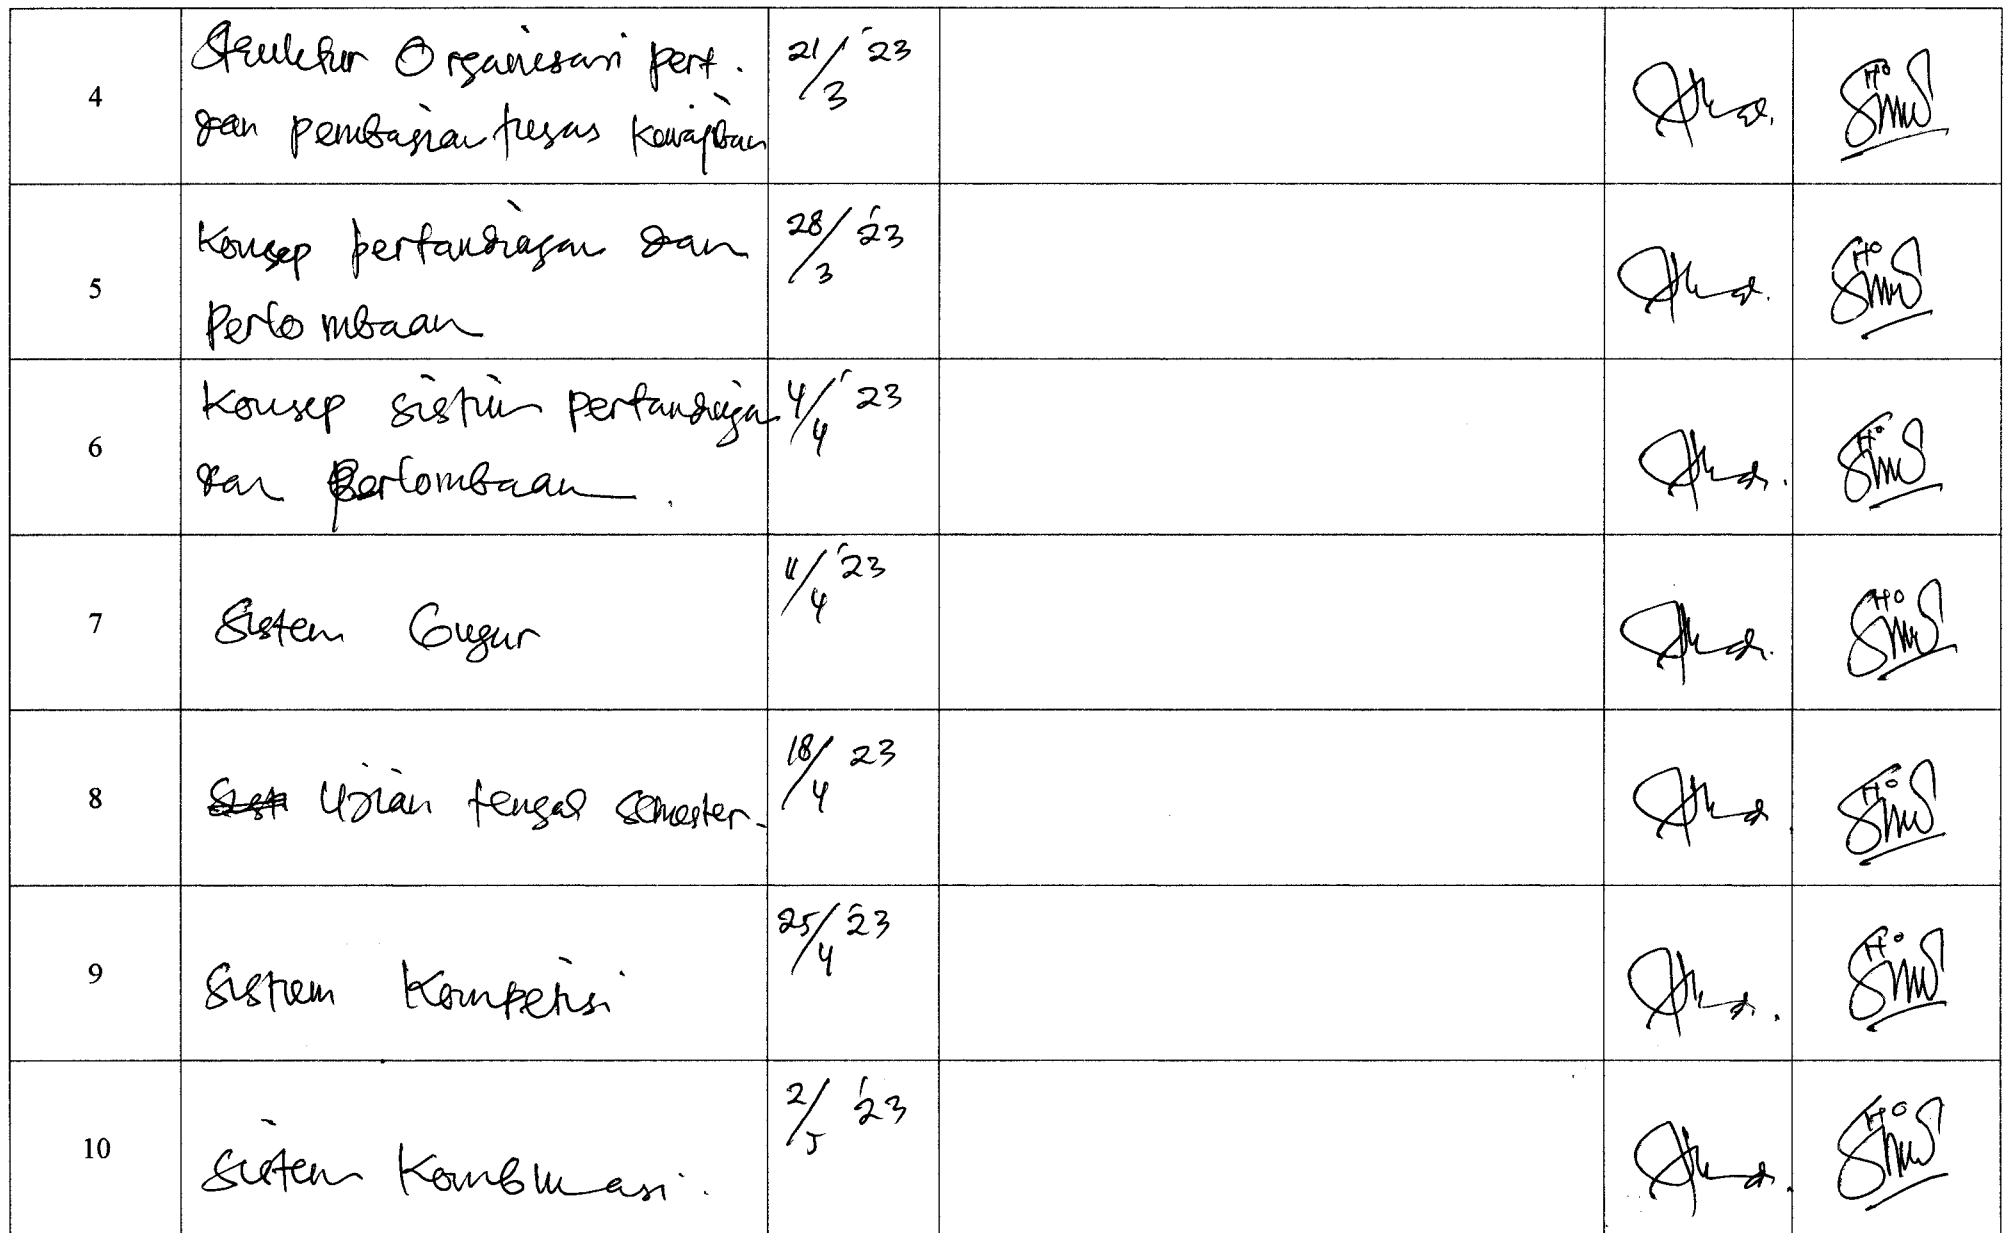 4
Struktur Organisasi pert.
dan pembagian tugas Kewajiban
21/3 '23
5
Konsep pertandingan dan
Perlombaan
28/3 '23
6
Konsep sistim pertandingan
dan Perlombaan.
4/4 '23
7
Sistem Gugur
11/4 '23
8
Ujian tengah semester.
18/4 23
9
Sistem Kompetisi
25/4 '23
10
Sistem Kombinasi.
2/5 '23